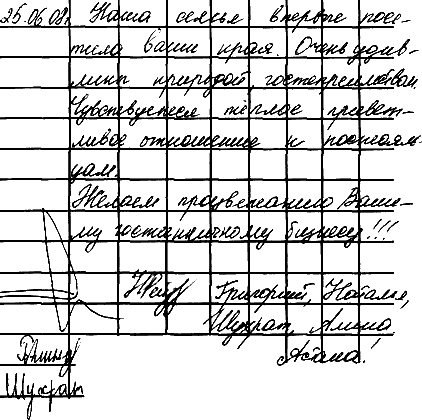 25.06.08г. Наша семья впервые посе-
тила ваши края. Очень удив-
лены природой, гостеприимством.
Чувствуется тёплое привет-
ливое отношение к постояль-
цам.
Желаем процветанию Ваше-
му гостиничному бизнесу!!!
Григорий, Наталья,
Шухрат, Алина
Астана!
Шухрат